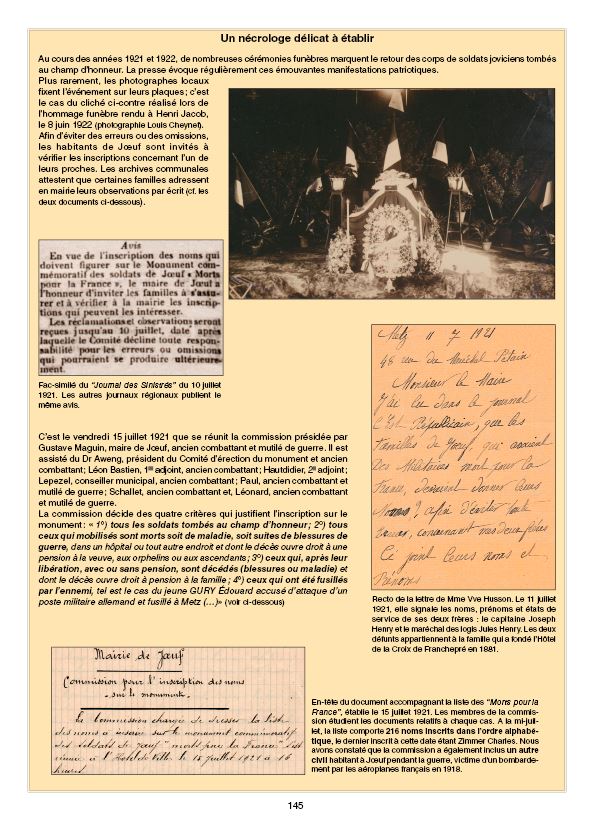 Un nécrologe délicat à établir
Au cours des années 1921 et 1922, de nombreuses cérémonies funèbres marquent le retour des corps de soldats joviciens tombés
au champ d'honneur. La presse évoque régulièrement ces émouvantes manifestations patriotiques.
Plus rarement, les photographes locaux
fixent l'événement sur leurs plaques ; c'est
le cas du cliché ci-contre réalisé lors de
l'hommage funèbre rendu à Henri Jacob,
le 8 juin 1922 (photographie Louis Cheynet).
Afin d'éviter des erreurs ou des omissions,
les habitants de Jœuf sont invités à
vérifier les inscriptions concernant l'un de
leurs proches. Les archives communales
attestent que certaines familles adressent
en mairie leurs observations par écrit (cf. les
deux documents ci-dessous).
Avis
En vue de l'inscription des noms qui
doivent figurer sur le Monument com-
mémoratif des soldats de Jœuf « Morts
pour la France », le maire de Jœuf a
l'honneur d'inviter les familles à s'assu-
rer et à vérifier à la mairie les inscrip-
tions qui peuvent les intéresser.
Les réclamations et observations seront
reçues jusqu'au 10 juillet, date après
laquelle le Comité décline toute respon-
sabilité pour les erreurs ou omissions
qui pourraient se produire ultérieure-
ment.
Fac-similé du "Journal des Sinistrés" du 10 juillet
1921. Les autres journaux régionaux publient le
même avis.
C'est le vendredi 15 juillet 1921 que se réunit la commission présidée par
Gustave Maguin, maire de Jœuf, ancien combattant et mutilé de guerre. Il est
assisté du Dr Aweng, président du Comité d'érection du monument et ancien
combattant ; Léon Bastien, 1er adjoint, ancien combattant ; Hautdidier, 2e adjoint ;
Lepezel, conseiller municipal, ancien combattant ; Paul, ancien combattant et
mutilé de guerre ; Schallet, ancien combattant et, Léonard, ancien combattant
et mutilé de guerre.
La commission décide des quatre critères qui justifient l'inscription sur le
monument : « 1°) tous les soldats tombés au champ d'honneur ; 2°) tous
ceux qui mobilisés sont morts soit de maladie, soit suites de blessures de
guerre, dans un hôpital ou tout autre endroit et dont le décès ouvre droit à une
pension à la veuve, aux orphelins ou aux ascendants ; 3°) ceux qui, après leur
libération, avec ou sans pension, sont décédés (blessures ou maladie) et
dont le décès ouvre droit à pension à la famille ; 4°) ceux qui ont été fusillés
par l'ennemi, tel est le cas du jeune GURY Édouard accusé d'attaque d'un
poste militaire allemand et fusillé à Metz (…)» (voir ci-dessous)
Metz 11 7 1921
48 rue du Maréchal Pétain
Monsieur le Maire
J'ai lu dans le journal
l'Est Républicain, que les
familles de Jœuf, qui avaient
des Militaires mort pour la
France, devaient donner leurs
Noms, afin d'éviter toute
erreur, concernant mes deux frères
Ci joint leurs noms et
Prénoms
Recto de la lettre de Mme Vve Husson. Le 11 juillet
1921, elle signale les noms, prénoms et états de
service de ses deux frères : le capitaine Joseph
Henry et le maréchal des logis Jules Henry. Les deux
défunts appartiennent à la famille qui a fondé l'Hôtel
de la Croix de Franchepré en 1881.
Mairie de Jœuf
Commission pour l'inscription des noms
sur le monument.
La Commission chargée de dresser la liste
des noms à inscrire sur le monument commémoratif
des soldats de Jœuf "morts pour la France" s'est
réunie à l'Hôtel de Ville le 15 Juillet 1921 à 16
heures.
En-tête du document accompagnant la liste des "Morts pour la
France", établie le 15 juillet 1921. Les membres de la commis-
sion étudient les documents relatifs à chaque cas. A la mi-juil-
let, la liste comporte 216 noms inscrits dans l'ordre alphabé-
tique, le dernier inscrit à cette date étant Zimmer Charles. Nous
avons constaté que la commission a également inclus un autre
civil habitant à Jœuf pendant la guerre, victime d'un bombarde-
ment par les aéroplanes français en 1918.
145